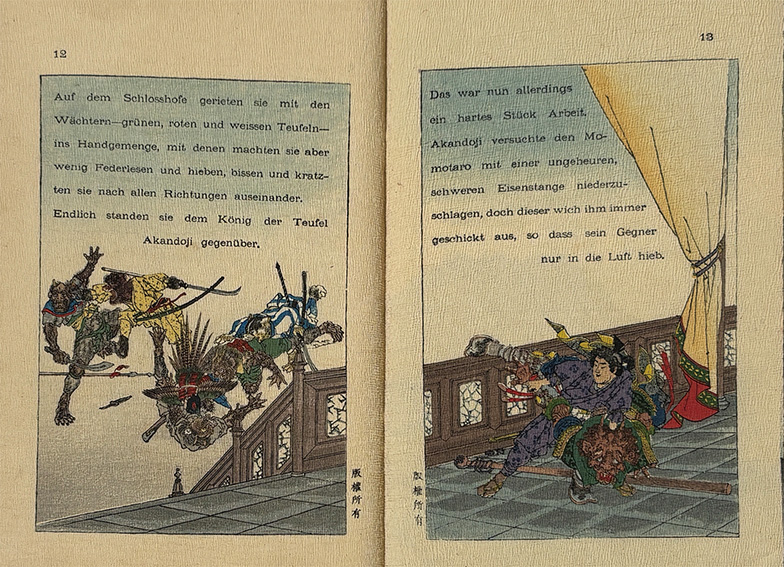 12
Auf dem Schlosshofe gerieten sie mit den
Wächtern—grünen, roten und weissen Teufeln—
ins Handgemenge, mit denen machten sie aber
wenig Federlesen und hieben, bissen und kratz-
ten sie nach allen Richtungen auseinander.
Endlich standen sie dem König der Teufel
Akandoji gegenüber.
版權所有
13
Das war nun allerdings
ein hartes Stück Arbeit.
Akandoji versuchte den Mo-
motaro mit einer ungeheuren,
schweren Eisenstange niederzu-
schlagen, doch dieser wich ihm immer
geschickt aus, so dass sein Gegner
nur in die Luft hieb.
版權所有